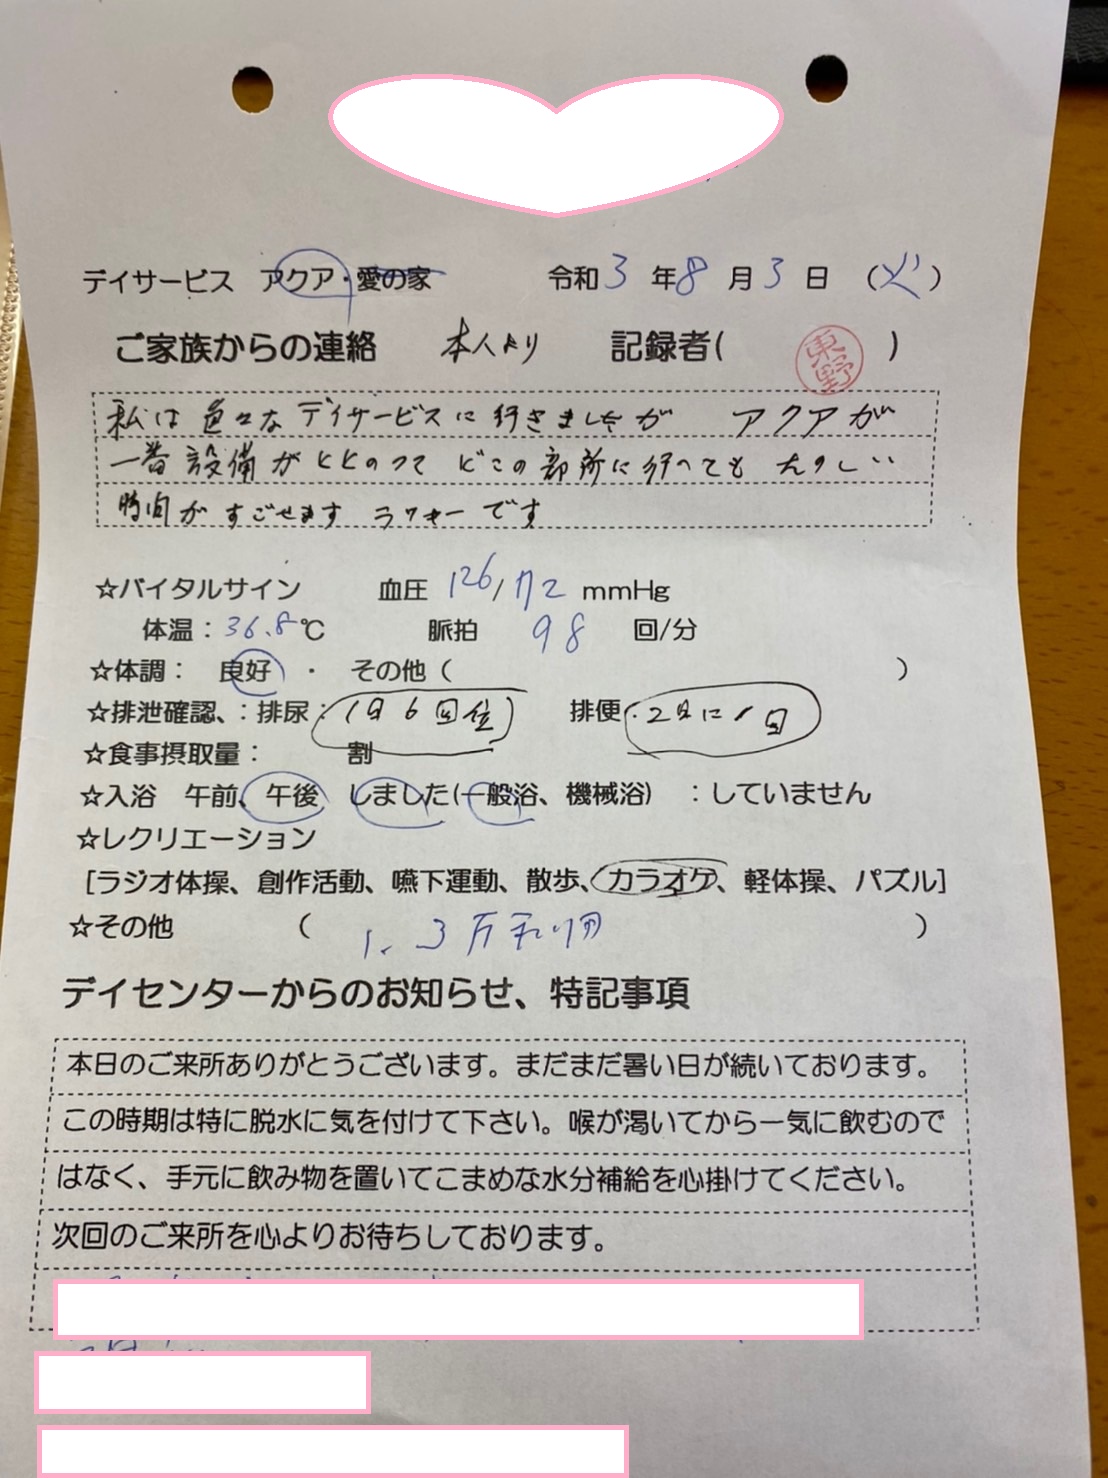 デイサービス アクア・愛の家 令和3年8月3日(火)
ご家族からの連絡 本人より 記録者( 東野 )
私は色々なデイサービスに行きましたが アクアが
一番設備がととのって どこの部所に行ってもたのしい
時間がすごせます ラッキーです
☆バイタルサイン 血圧 126/72 mmHg
体温:36.8℃ 脈拍 98 回/分
☆体調: 良好 ・ その他( )
☆排泄確認、:排尿:1日6回位 排便:2日に1回
☆食事摂取量: 割
☆入浴 午前、午後 しました(一般浴、機械浴) :していません
☆レクリエーション
[ラジオ体操、創作活動、嚥下運動、散歩、カラオケ、軽体操、パズル]
☆その他 ( 1.3万利用 )
デイセンターからのお知らせ、特記事項
本日のご来所ありがとうございます。まだまだ暑い日が続いております。
この時期は特に脱水に気を付けて下さい。喉が渇いてから一気に飲むので
はなく、手元に飲み物を置いてこまめな水分補給を心掛けてください。
次回のご来所を心よりお待ちしております。